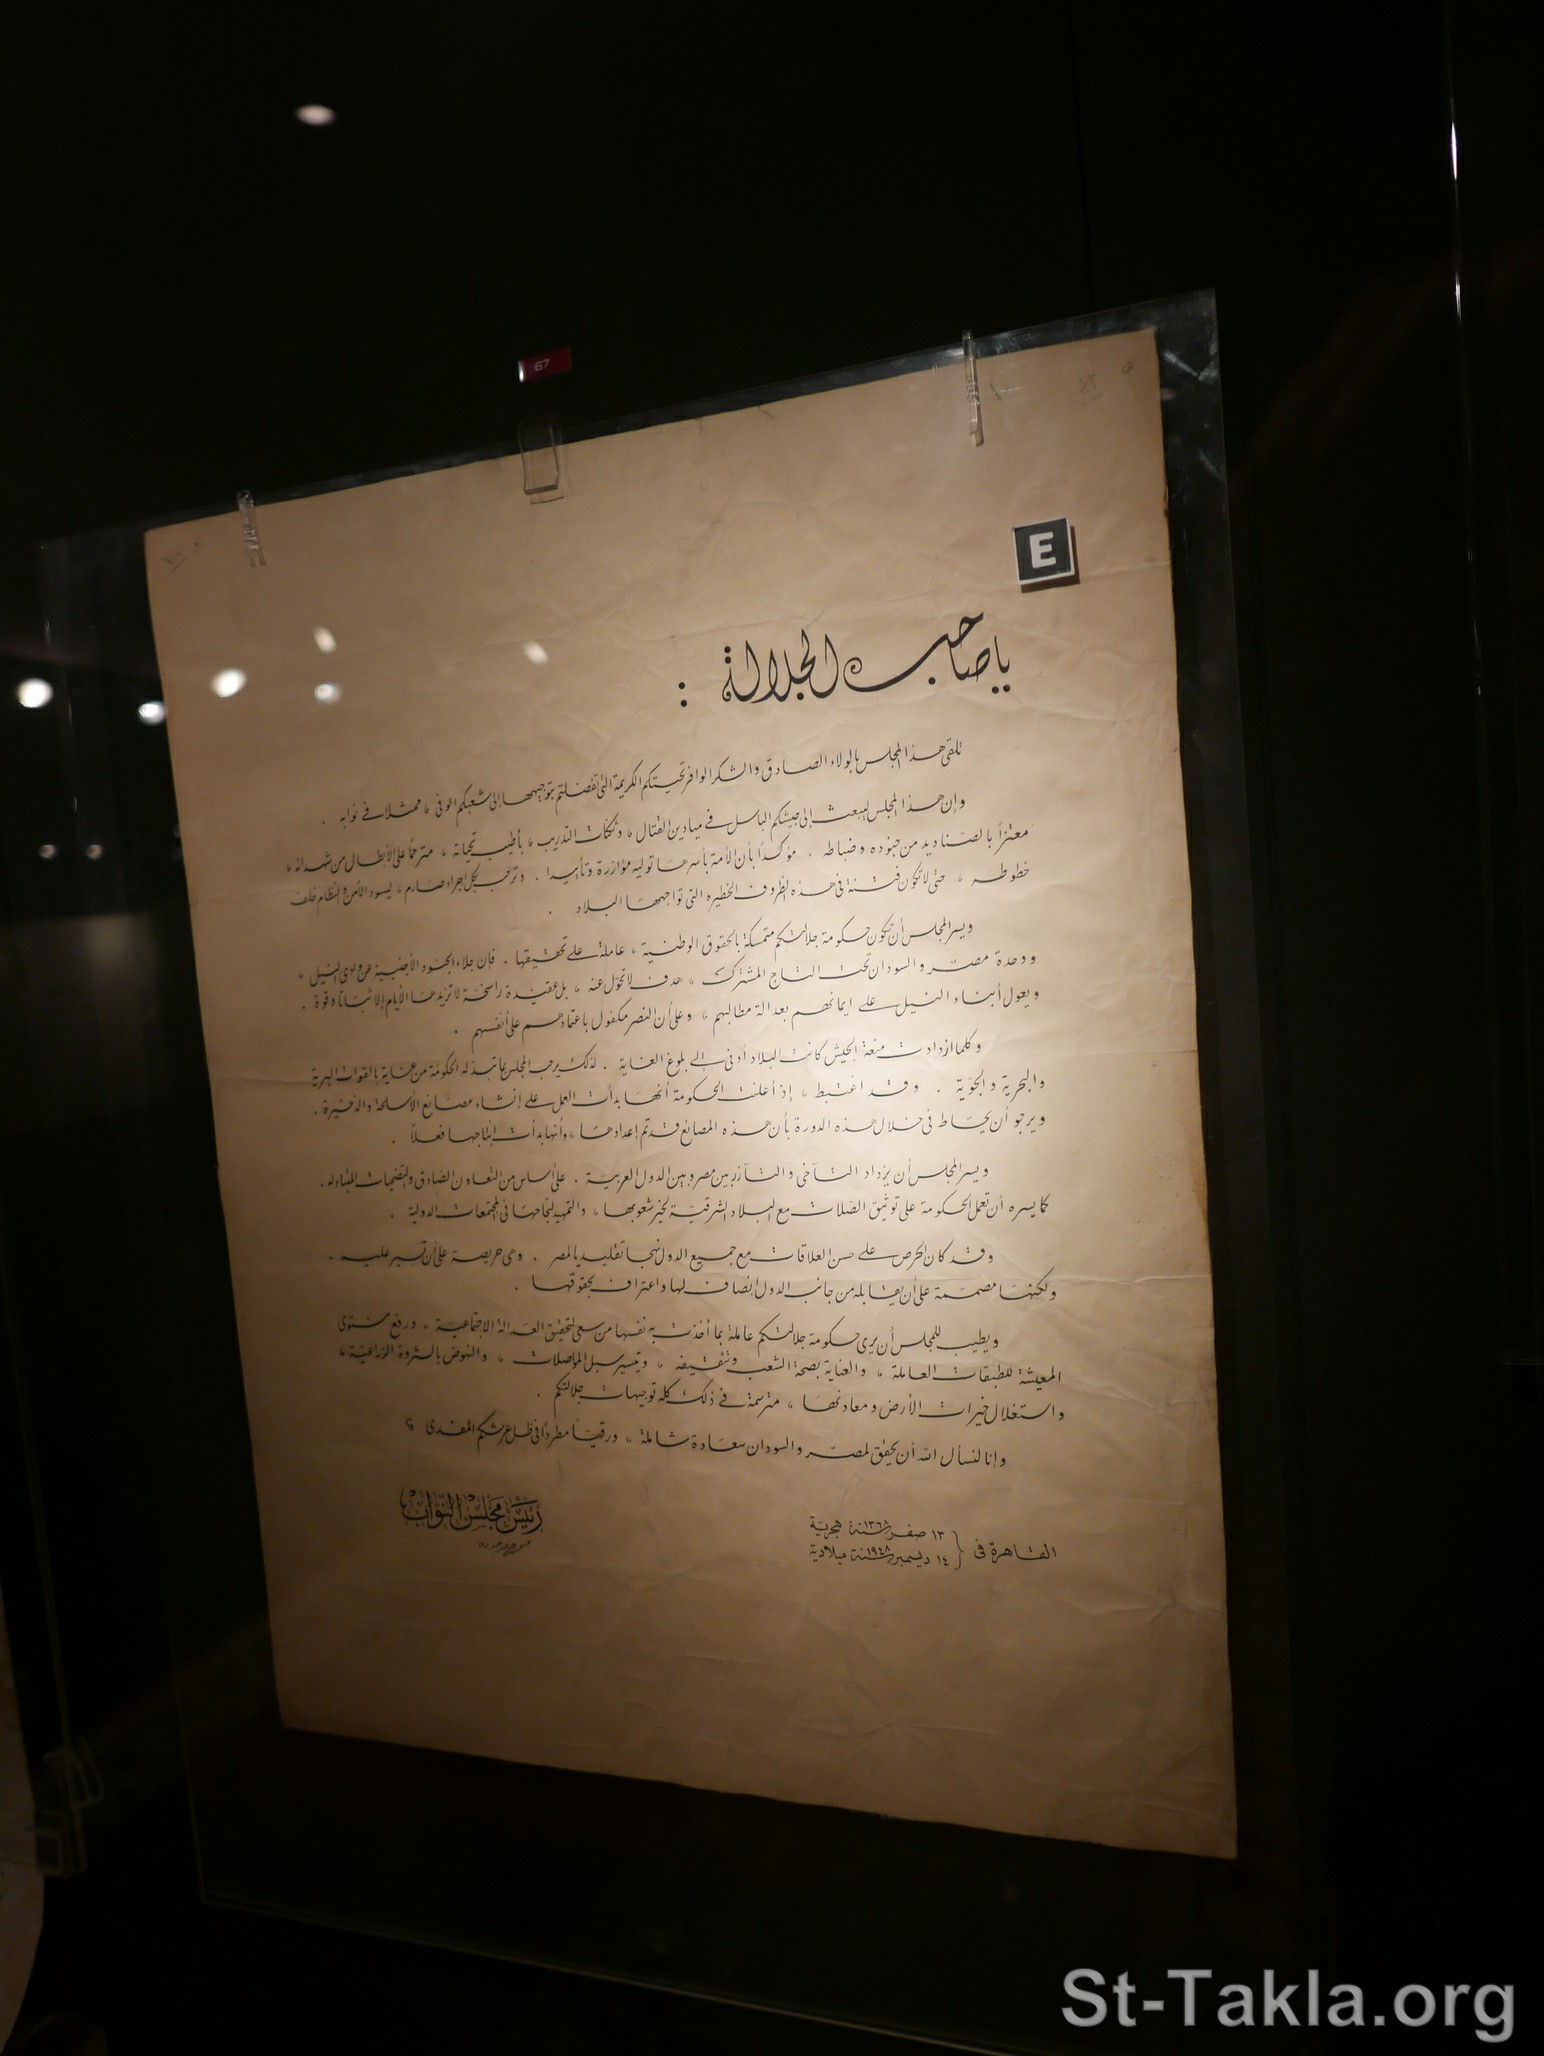 67
E
يا صاحب الجلالة :
تلقى هذا المجلس بالولاء الصادق والشكر الوافر تحيتكم الكريمة التى تفضلتم بتوجيهها إلى شعبكم الوفى ، ممثلا فى نوابه .
وإن هذا المجلس ليبعث إلى جيشكم الباسل فى ميادين القتال ، وثكنات التدريب ، بأطيب تحياته ، مترحما على الأبطال من شهدائه ،
معتزاً بالصناديد من جنوده وضباطه . مؤكداً بأن الأمة بأسرها توليه مؤازرة وتأييدا . وترقب كل إجراء صارم ، ليسود الأمن والنظام خلف
خطوطه ، حتى لا تكون فتنة فى هذه الظروف الخطيرة التى تواجهها البلاد .
ويسر المجلس أن تكون حكومة جلالتكم متمسكة بالحقوق الوطنية ، عاملة على تحقيقها . فإن جلاء الجنود الأجنبية عن وادى النيل ،
ووحدة مصر والسودان تحت التاج المشترك ، هدف لا تحول عنه ، بل عقيدة راسخة لا تزيدها الأيام إلا ثباتا وقوة .
ويعول أبناء النيل على ايمانهم بعدالة مطالبهم ، وعلى أن النصر مكفول باعتمادهم على أنفسهم .
وكلما ازدادت منعة الجيش كانت البلاد أدنى إلى بلوغ الغاية . لذلك يرحب المجلس بما تبذله الحكومة من عناية بالقوات البرية
والبحرية والجوية . وقد اغتبط ، إذ أعلنت الحكومة أنها بدأت العمل على إنشاء مصانع الأسلحة والذخيرة .
ويرجو أن يحاط فى خلال هذه الدورة بأن هذه المصانع قد تم إعدادها ، وأنها بدأت إنتاجها فعلاً .
ويسر المجلس أن يزداد التآخى والتآزر بين مصر وبين الدول العربية . على أساس من التعاون الصادق والتضحيات المتبادلة .
كما يسره أن تعمل الحكومة على توثيق الصلات مع البلاد الشرقية لخير شعوبها ، والتمهيد لنجاحها فى المجتمعات الدولية .
وقد كان الحرص على حسن العلاقات مع جميع الدول نهجا تقليديا لمصر . وهى حريصة على أن تسير عليه .
ولكنها مصممة على أن يقابله من جانب الدول إنصاف لها واعتراف بحقوقها .
ويطيب للمجلس أن يرى حكومة جلالتكم عاملة بما أخذت به نفسها من سعى لتحقيق العدالة الاجتماعية ، ورفع مستوى
المعيشة للطبقات العاملة ، والعناية بصحة الشعب وتثقيفه ، وتيسير سبل المواصلات ، والنهوض بالثروة الزراعية ،
واستغلال خيرات الأرض ومعادنها ، مترسمة فى ذلك كله توجيهات جلالتكم .
وإنا لنسأل الله أن يحقق لمصر والسودان سعادة شاملة ، ورقياً مطرداً فى ظل عرشكم المفدى
القاهرة فى
١٣ صفر سنة ١٣٦٨ هجرية
١٤ ديسمبر سنة ١٩٤٨ ميلادية
رئيس مجلس النواب
St-Takla.org